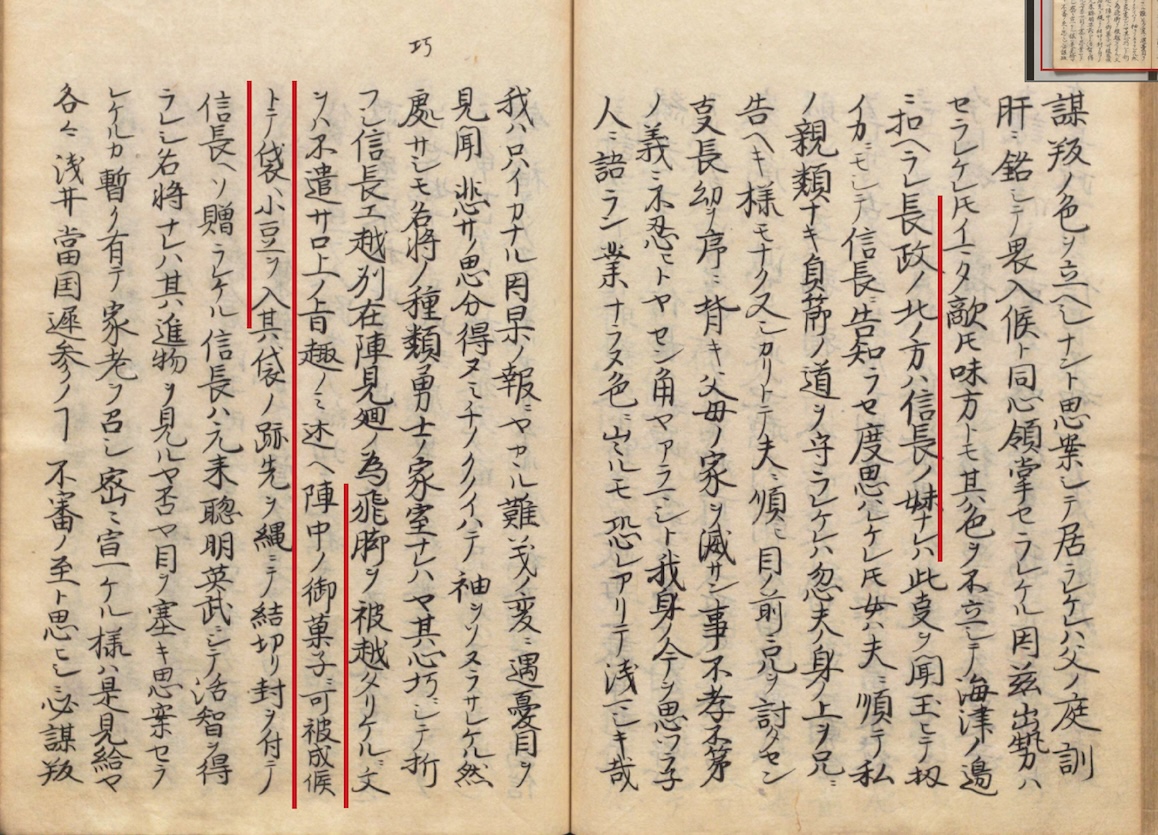 謀叛ノ色ヲ立ヘシナント思案シテ居ラレケレハ父ノ庭訓
肝ニ銘シテ畏入候ト同心領掌セラレケル因茲出勢ハ
セラレケレ𪜈イマタ敵𪜈味方トモ其色ヲ不立シテ海津ノ邉
ニ扣ヘラレ長政ノ北ノ方ハ信長ノ妹ナレハ此叓ヲ聞玉ヒテ扨
イカニモシテ信長ニ告知ラセ度思ハレケレ𪜈女ハ夫ニ順テ私
ノ親類ナキ貞節ノ道ヲ守ラレケレハ忽夫ノ身ノ上ヲ兄ニ
告ヘキ様モナク又シカリトテ夫ニ順ヒ目ノ前ニ兄ヲ討タセン
叓長幼ノ序ニ背キ父母ノ家ヲ滅サン事不孝不弟
ノ義ニ不忍トヤセン角ヤアラマシト我身ノ今ヲ思フ子
人ニ語ラン業ナラス色ニ出ルモ恐レアリテ浅マシキ哉
巧
我ハ只イカナル因果ノ報ニヤカヽル難義ノ変ニ遇憂目ヲ
見聞悲サノ思分得ヌミチノククイハテ袖ヲソヌラサレケル然
処サシモ名将ノ種類勇士ノ家室ナレハヤ其心巧ニシテ折
フシ信長エ越列在陣見廻ノ為飛脚ヲ被越タリケルニ文
ヲハ不遣サ口上ノ旨趣ノミ述ヘ陣中ノ御菓子ニ可被成候
トテ袋ニ小豆ヲ入其袋ノ跡先ヲ縄ニテ結切リ封ヲ付テ
信長ヘソ贈ラレケル信長ハ元来聡明英武ニシテ活智ヲ得
ラレシ名将ナレハ其進物ヲ見ルヤ否ヤ目ヲ塞キ思案セラ
レケルカ暫ク有テ家老ヲ召シ密ニ宣ケル様ハ是見給ヘ
各々浅井當国遅参ノヿ不審ノ至ト思ヒシニ必謀叛